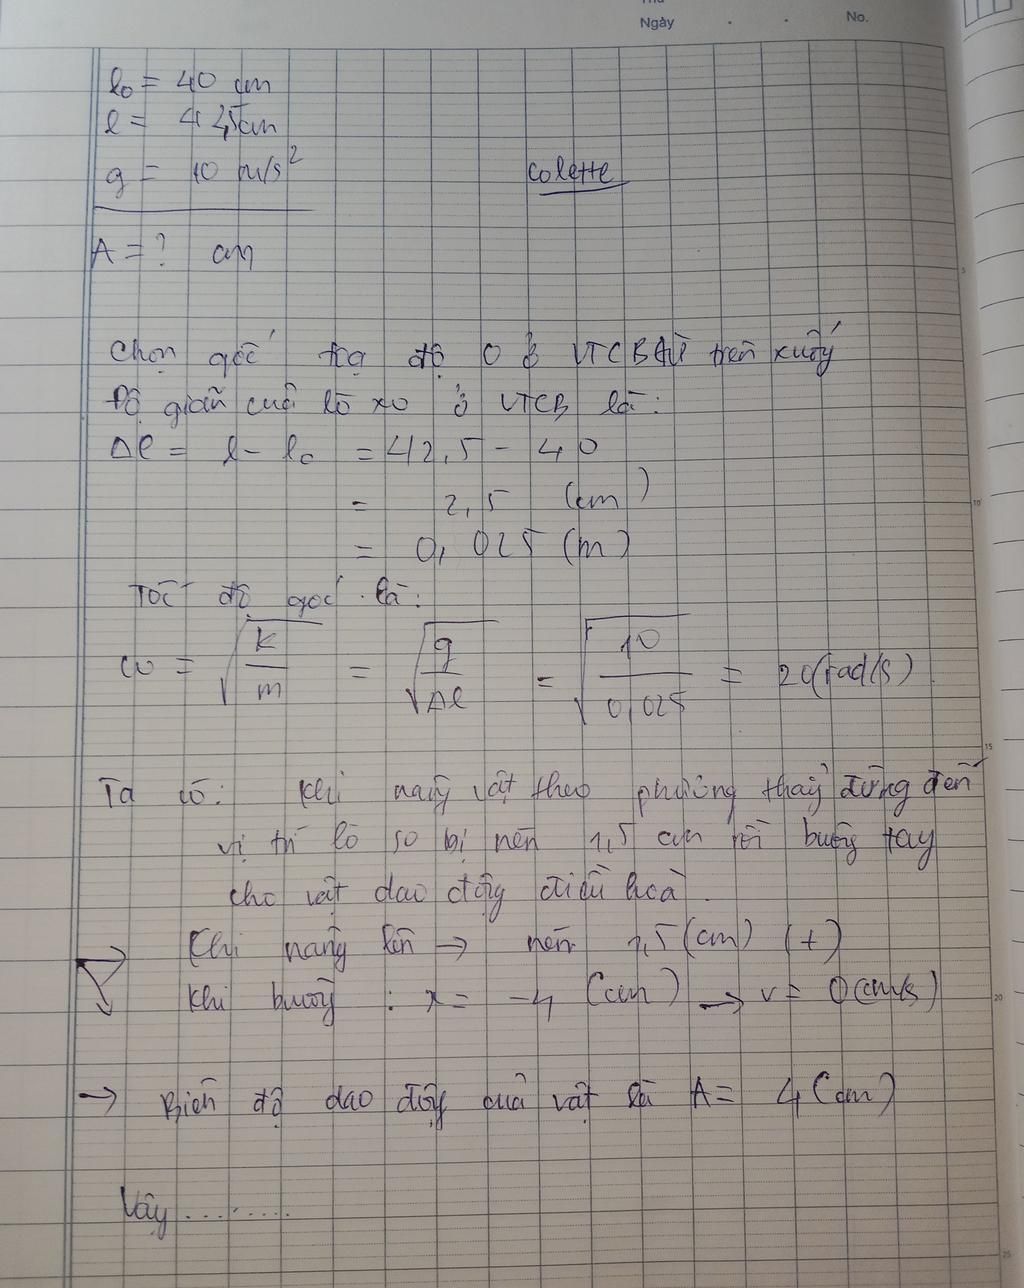 Thứ
Ngày . . No.
l₀ = 40 cm
l = 42,5cm
g = 10 m/s²
Colette
A = ? cm
Chọn gốc tọa độ O ở VTCB trên xuống
Độ giãn của lò xo ở VTCB là:
Δl = l - l₀ = 42,5 - 40
= 2,5 (cm)
= 0,025 (m)
Tốc độ góc là:
ω = √(k/m) = √(g/Δl) = √(10/0,025) = 20(rad/s)
Ta có: Khi nâng vật theo phương thẳng đứng đến
vị trí lò so bị nén 1,5 cm rồi buông tay
cho vật dao động điều hoà.
Khi nâng lên → nén 1,5 (cm) (+)
Khi buông : x = -4 (cm) → v = 0(cm/s)
→ Biên độ dao động của vật là A = 4 (cm)
Vậy .........
5
10
15
20
25